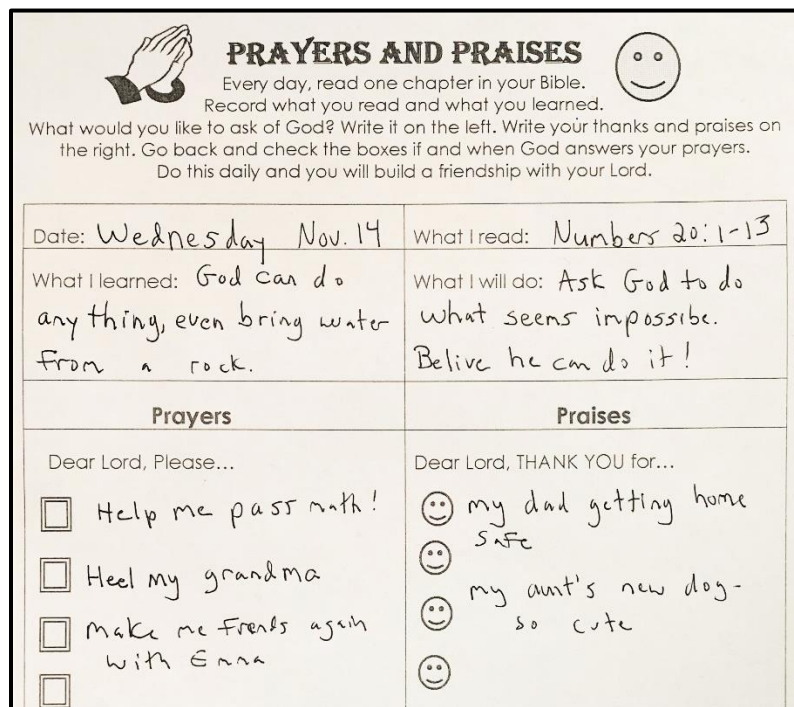 PRAYERS AND PRAISES
Every day, read one chapter in your Bible.
Record what you read and what you learned.
What would you like to ask of God? Write it on the left. Write your thanks and praises on
the right. Go back and check the boxes if and when God answers your prayers.
Do this daily and you will build a friendship with your Lord.
Date: Wednesday Nov. 14
What I read: Numbers 20:1-13
What I learned: God can do
any thing, even bring water
from a rock.
What I will do: Ask God to do
what seems impossibe.
Belive he can do it!
Prayers
Dear Lord, Please...
Help me pass math!
Heel my grandma
Make me Frends again
with Emma
Praises
Dear Lord, THANK YOU for...
my dad getting home
safe
my aunt's new dog-
so cute